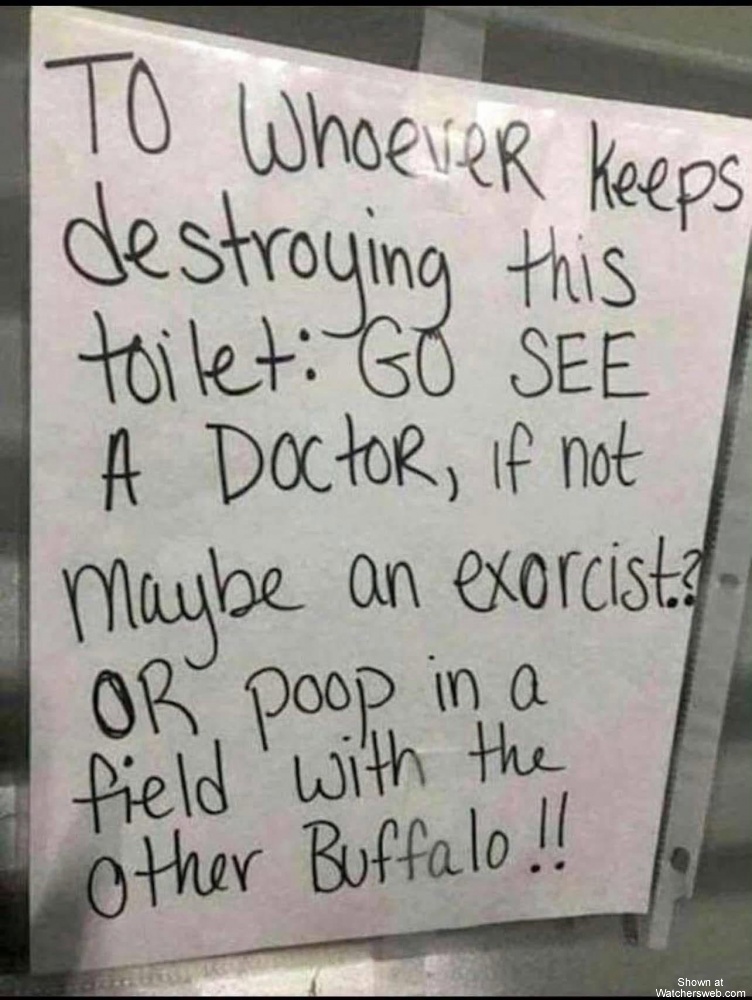 TO Whoever keeps
destroying this
toilet: GO SEE
A DOCTOR, if not
Maybe an exorcist.?
OR poop in a
field with the
other Buffalo!!
Shown at
Watchersweb.com